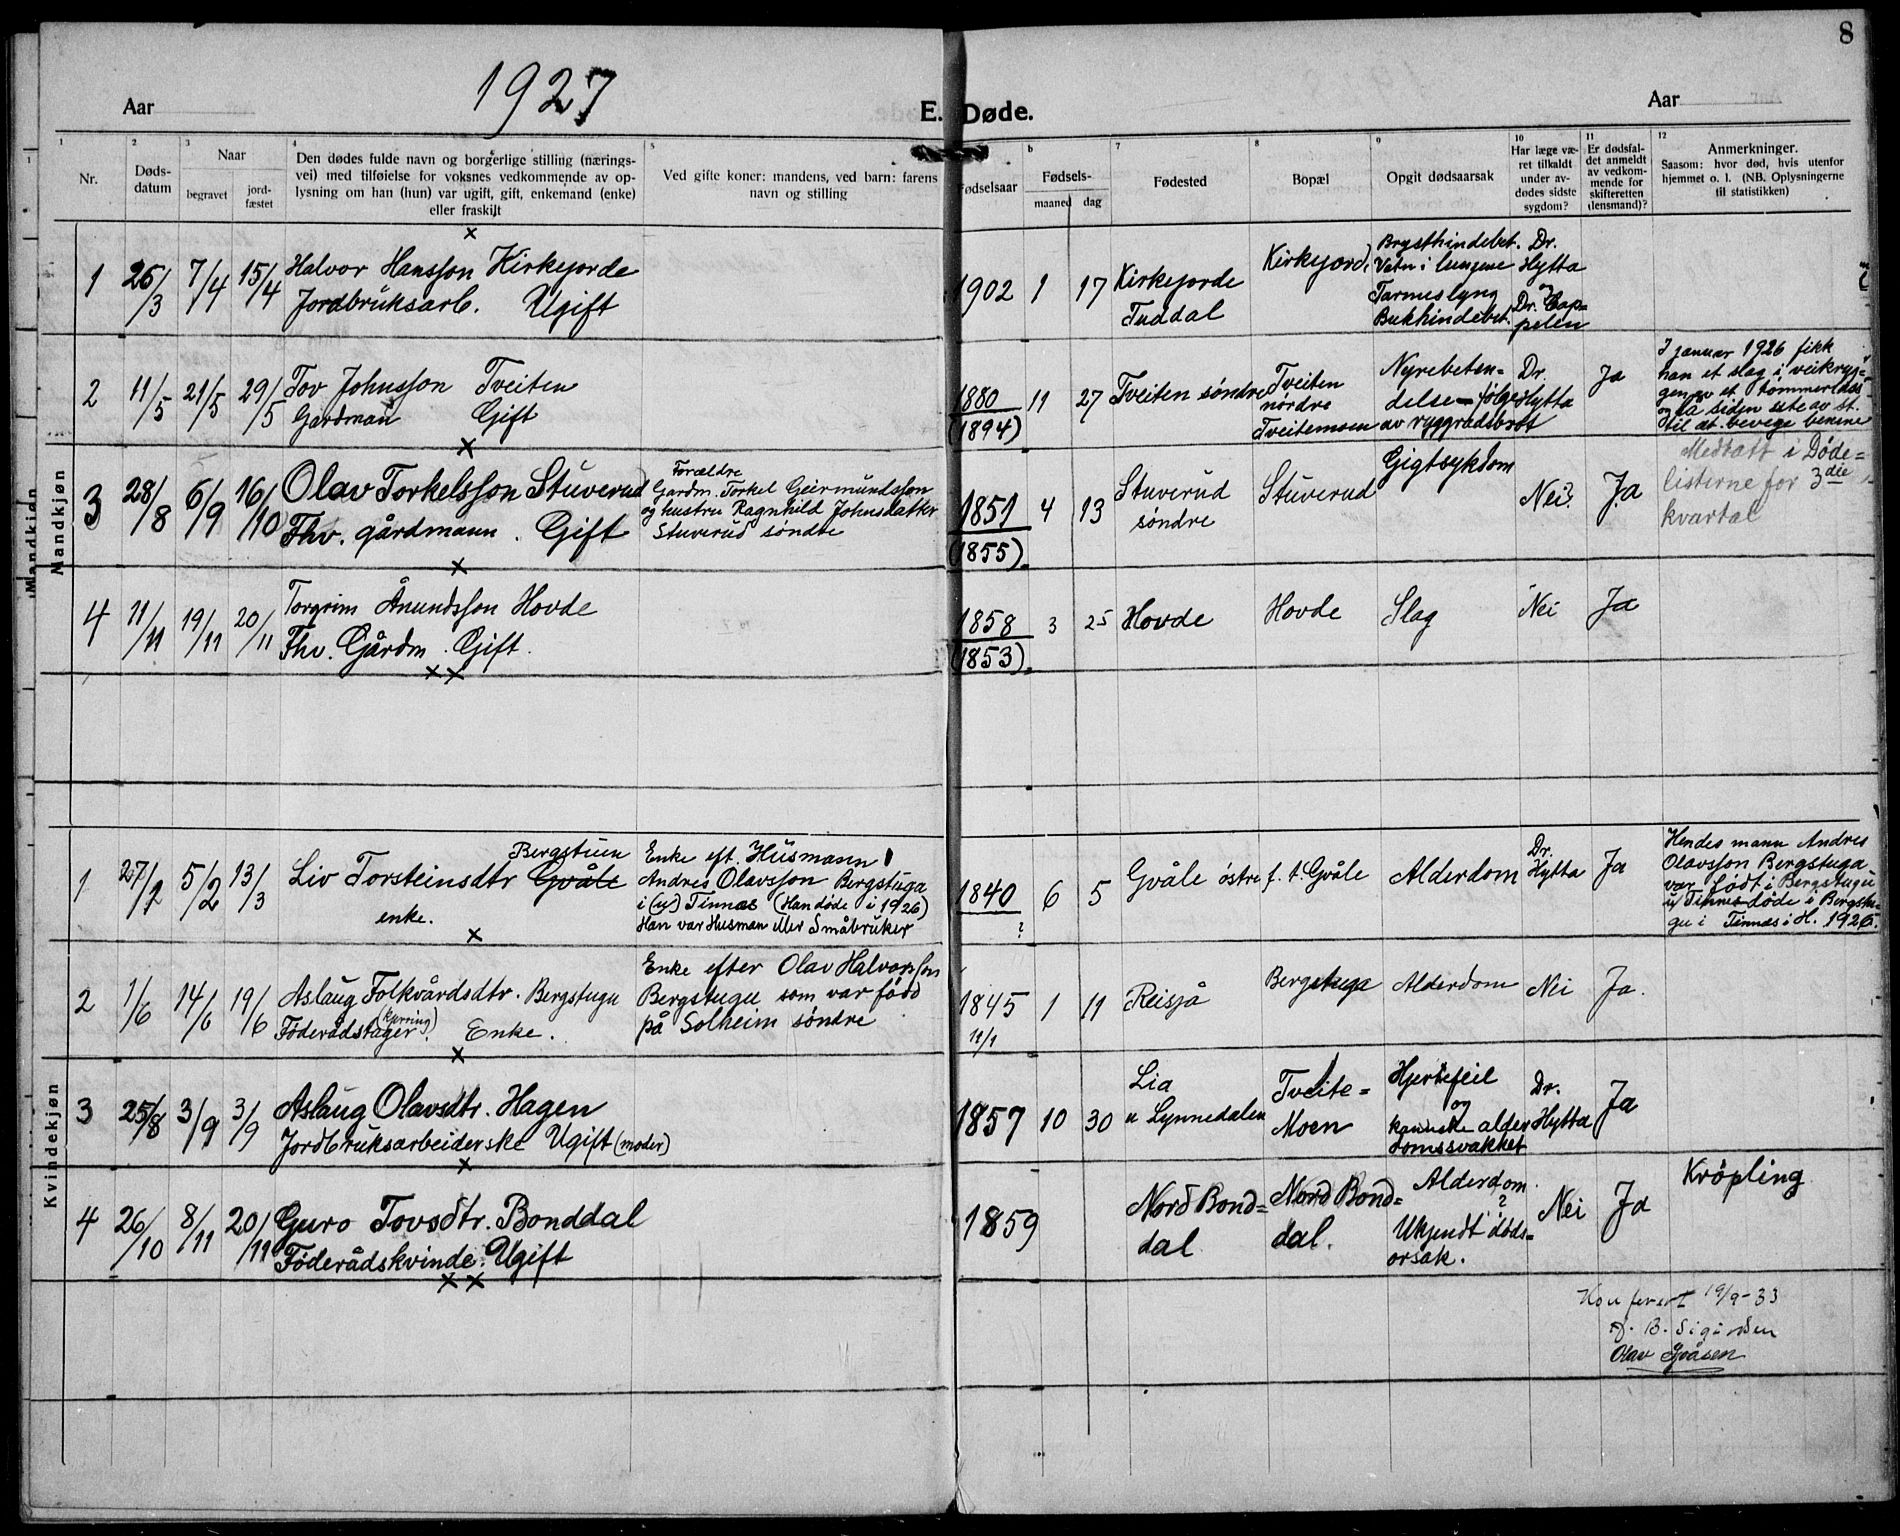 8
1927
Aar
E. Døde.
Aar
1
2
3
4
5
b
7
8
9
10
11
12
Nr.
Døds-
datum
Naar
begravet
jord-
fæstet
Den dødes fulde navn og borgerlige stilling (nærings-
vei) med tilføielse for voksnes vedkommende av op-
lysning om han (hun) var ugift, gift, enkemand (enke)
eller fraskilt
Ved gifte koner: mandens, ved barn: farens
navn og stilling
Fødselsaar
Fødsels-
maaned
dag
Fødested
Bopæl
Opgit dødsaarsak
Har læge væ-
ret tilkaldt
under av-
dødes sidste
sygdom?
Er dødsfal-
det anmeldt
av vedkom-
mende for
skifteretten
(lensmand)?
Anmerkninger.
Saasom: hvor død, hvis utenfor
hjemmet o. l. (NB. Oplysningerne
til statistikken)
Mandkjøn
x
1 26/3 7/4 15/4 Halvor Hansson Kirkejorde
Jordbruksarb. Ugift
1902 1 17 Kirkejorde
Tuddal
Kirkejord
Brysthindebet.
Vatn i lungene
Tarmeslyng
Bukhindebet.
Dr.
Hytta
og
Dr. Cap-
pelen
2 11/5 21/5 29/5 Tov Johnsson Tveiten
Gardman Gift
x
1880 11 27 Tveiten søndre
(1894)
Tveiten
nørdre
Tveitemoen
Nyrebeten-
delse – følge
av ryggradsbrot
Dr
Hytta
Ja
I januar 1926 fikk
han et slag i veikryg-
gen av et tømmerlass
og la siden ute av st.
til at bevege benene
3 28/8 6/9 16/10 Olav Torkelsson Stuverud
Fhv. gårdmann. Gift
x
Forældre
Gardm. Torkel Geirmundsson
og hustru Ragnhild Johnsdatter
Stuverud søndre
1851 4 13 Stuverud
søndre
(1855).
Stuverud
Gigtsykdom
Nei?
Ja
Medtatt i Døde=
listerne for 3die
kvartal
4 11/11 19/11 20/11 Torgrim Ånundsson Hovde
Fhv. Gårdm. Gift.
x x
1858 3 25 Hovde
(1853).
Hovde
Slag
Nei
Ja
Kvindekjøn
1 27/1 5/2 13/3 Liv Torsteinsdtr Gvåle
Bergstuen
enke.
x
Enke eft. Husmann
Andres Olavsson Bergstuga
i (u) Tinnæs (Han døde i 1926)
Han var Husman eller Småbruker
1840 6 5 Gvåle østre
?
f. t. Gvåle
Alderdom
Dr.
Hytta
Ja
Hendes mann Andres
Olavsson Bergstuga
var født i Bergstugu
u/ Tinnes døde i Bergstu-
gu i Tinnæs i H. 1926.
2 1/6 14/6 19/6 Aslaug Folkvårdsdtr. Bergstugu
(kjerring)
Føderådstager. Enke.
x
Enke efter Olav Halvorsson
Bergstugu som var født
på Solheim søndre
1845 1 11 Reisjå
11/1
Bergstuga
Alderdom
Nei
Ja.
3 25/8 3/9 3/9 Aslaug Olavsdtr. Hagen
Jordbruksarbeiderske Ugift (moder)
x
1857 10 30 Lia
u Lynnedalen
Tveite=
Moen
Hjertefeil
og
kanske alder
domssvakket
Dr.
Hytta
Ja
4 26/10 8/11 20/11 Guro Tovsdtr. Bonddal
Føderådskvinde. Ugift
x x
1859 Nord Bond=
dal
Nord Bond=
dal.
Alderdom.
?
Ukjendt døds=
orsak.
Nei
Ja
Krøpling
Konferert 19/9-33
A. B. Sigurdsen
Olav Gvåsen